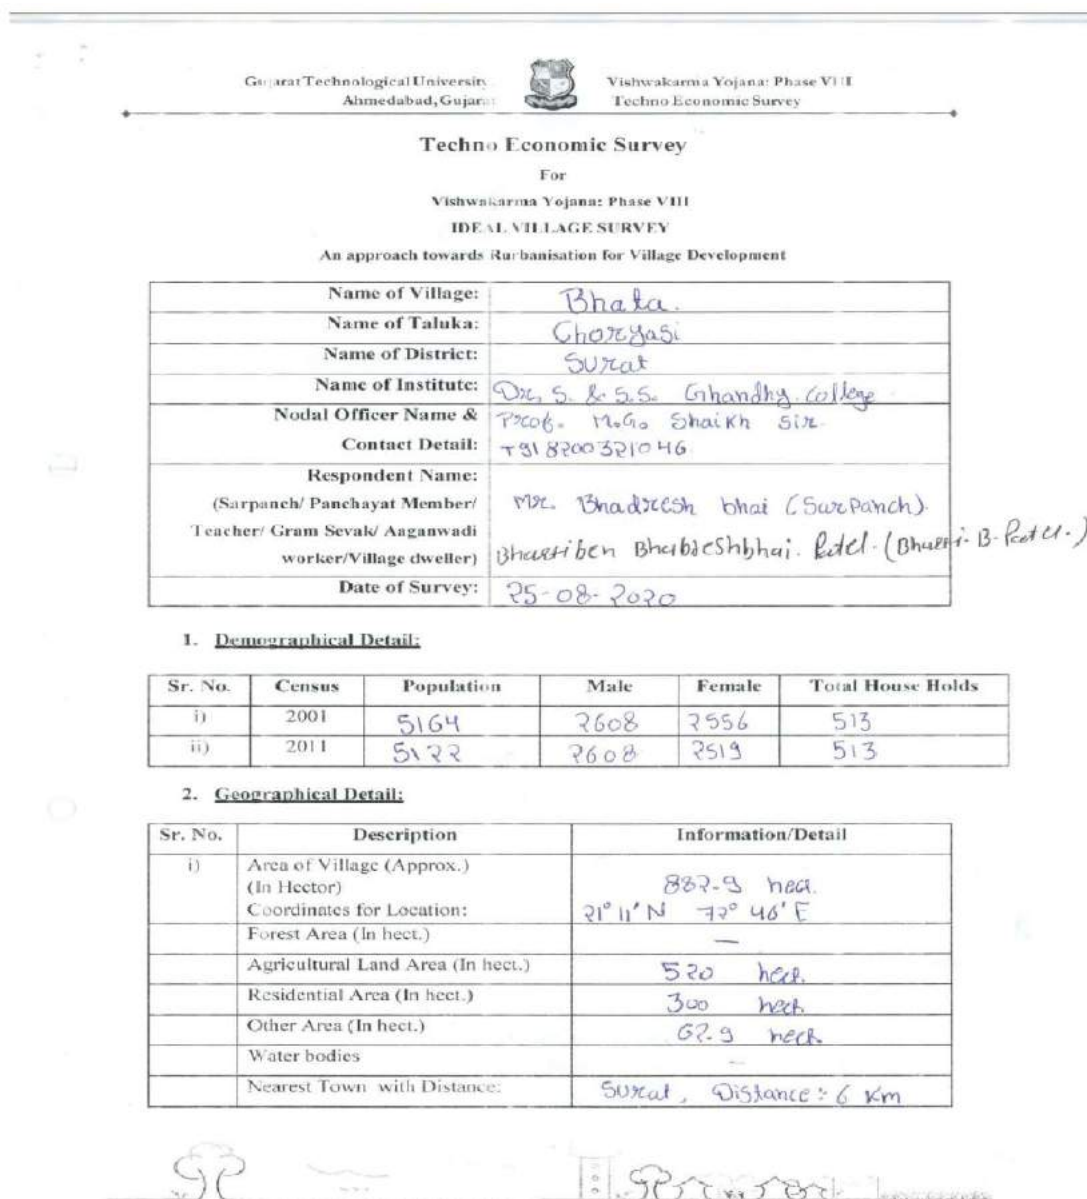 Gujarat Technological University, Vishwakarma Yojana: Phase VIII
Ahmedabad, Gujarat Techno Economic Survey
Techno Economic Survey
For
Vishwakarma Yojana: Phase VIII
IDEAL VILLAGE SURVEY
An approach towards Rurbanisation for Village Development
Name of Village: Bhata.
Name of Taluka: Choryasi
Name of District: Surat
Name of Institute: Dr. S. & S.S. Ghandhy College
Nodal Officer Name & Prof. M.G. Shaikh Sir.
Contact Detail: +91 8200321046
Respondent Name:
(Sarpanch/ Panchayat Member/ Mr. Bhadresh bhai (Surpanch).
Teacher/ Gram Sevak/ Aaganwadi
worker/Village dweller) Patel.
Date of Survey: 25-08-2020
1. Demographical Detail:
Sr. No. Census Population Male Female Total House Holds
i) 2001 5164 2608 2556 513
ii) 2011 5122 2608 2519 513
2. Geographical Detail:
Sr. No. Description Information/Detail
i) Area of Village (Approx.)
(In Hector) 882.9 hect.
Coordinates for Location: 21° 11' N 72° 46' E
Forest Area (In hect.) —
Agricultural Land Area (In hect.) 520 hect.
Residential Area (In hect.) 300 hect.
Other Area (In hect.) 62.9 hect.
Water bodies —
Nearest Town with Distance: Surat, Distance: 6 Km